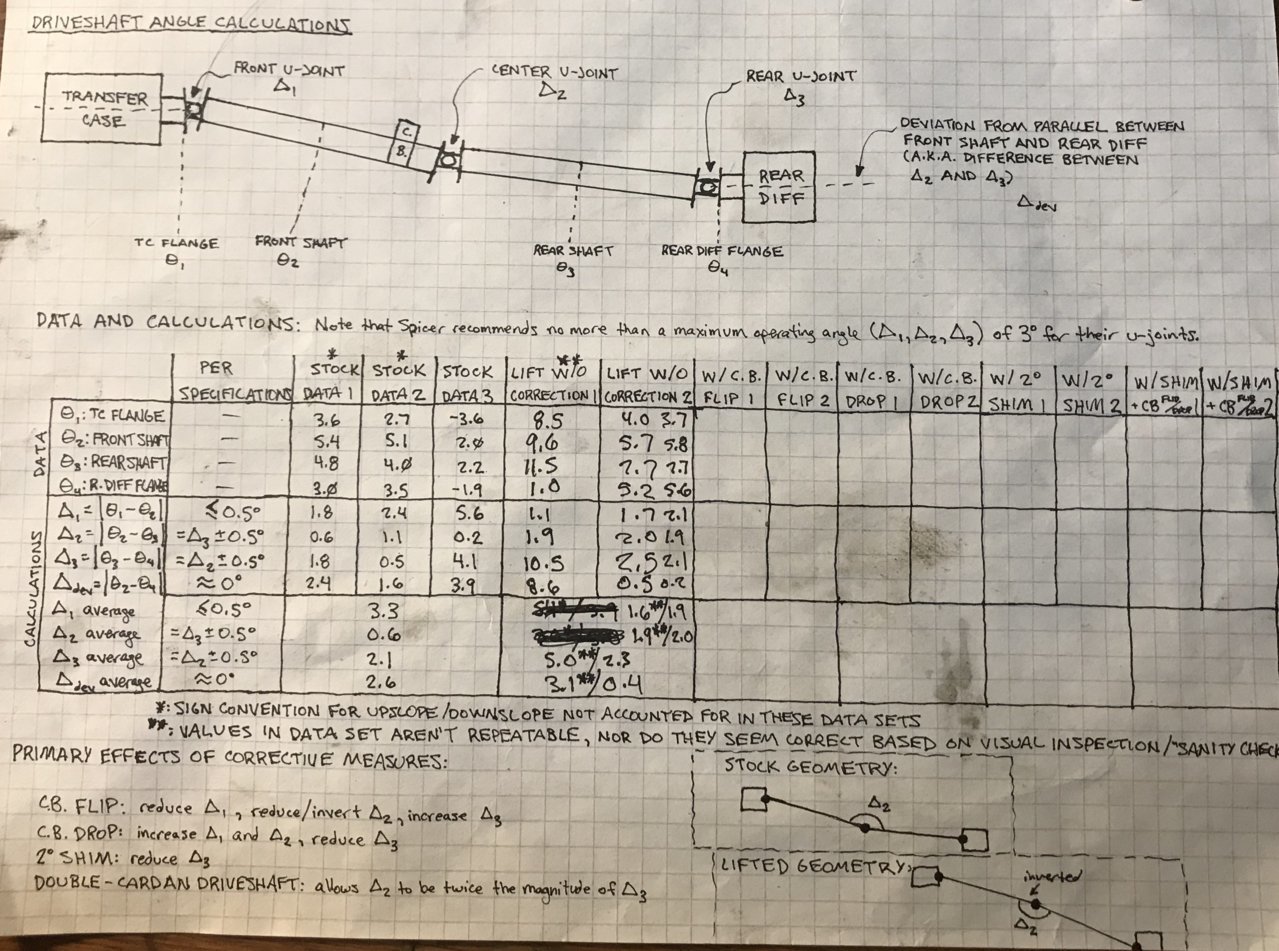 DRIVESHAFT ANGLE CALCULATIONS
FRONT U-JOINT
Δ1
CENTER U-JOINT
Δ2
REAR U-JOINT
Δ3
TRANSFER
CASE
C.
B.
REAR
DIFF
DEVIATION FROM PARALLEL BETWEEN
FRONT SHAFT AND REAR DIFF
(A.K.A. DIFFERENCE BETWEEN
Δ2 AND Δ3)
Δdev
TC FLANGE
θ1
FRONT SHAFT
θ2
REAR SHAFT
θ3
REAR DIFF FLANGE
θ4
DATA AND CALCULATIONS: Note that Spicer recommends no more than a maximum operating angle (Δ1, Δ2, Δ3) of 3° for their u-joints.
PER * STOCK * STOCK STOCK LIFT W/O ** LIFT W/O W/C.B. W/C.B. W/C.B. W/C.B. W/2° W/2° W/SHIM W/SHIM
SPECIFICATIONS DATA 1 DATA 2 DATA 3 CORRECTION 1 CORRECTION 2 FLIP 1 FLIP 2 DROP 1 DROP 2 SHIM 1 SHIM 2 +CB FLIP/DROP 1 +CB FLIP/DROP 2
DATA
θ1: TC FLANGE — 3.6 2.7 -3.6 8.5 4.0 3.7
θ2: FRONT SHAFT — 5.4 5.1 2.0 9.6 5.7 5.8
θ3: REAR SHAFT — 4.8 4.0 2.2 11.5 7.7 7.7
θ4: R. DIFF FLANGE — 3.0 3.5 -1.9 1.0 5.2 5.6
CALCULATIONS
Δ1=|θ1-θ2| ≤0.5° 1.8 2.4 5.6 1.1 1.7 2.1
Δ2=|θ2-θ3| =Δ3±0.5° 0.6 1.1 0.2 1.9 2.0 1.9
Δ3=|θ3-θ4| =Δ2±0.5° 1.8 0.5 4.1 10.5 2.5 2.1
Δdev=|θ2-θ4| ≈0° 2.4 1.6 3.9 8.6 0.5 0.2
Δ1 average ≤0.5° 3.3 1.6**/1.9
Δ2 average =Δ3±0.5° 0.6 1.9**/2.0
Δ3 average =Δ2±0.5° 2.1 5.0**/2.3
Δdev average ≈0° 2.6 3.1**/0.4
*: SIGN CONVENTION FOR UPSLOPE/DOWNSLOPE NOT ACCOUNTED FOR IN THESE DATA SETS
**: VALUES IN DATA SET AREN'T REPEATABLE, NOR DO THEY SEEM CORRECT BASED ON VISUAL INSPECTION/"SANITY CHECK
PRIMARY EFFECTS OF CORRECTIVE MEASURES:
C.B. FLIP: reduce Δ1, reduce/invert Δ2, increase Δ3
C.B. DROP: increase Δ1 and Δ2, reduce Δ3
2° SHIM: reduce Δ3
DOUBLE-CARDAN DRIVESHAFT: allows Δ2 to be twice the magnitude of Δ3
STOCK GEOMETRY:
Δ2
LIFTED GEOMETRY:
inverted
Δ2